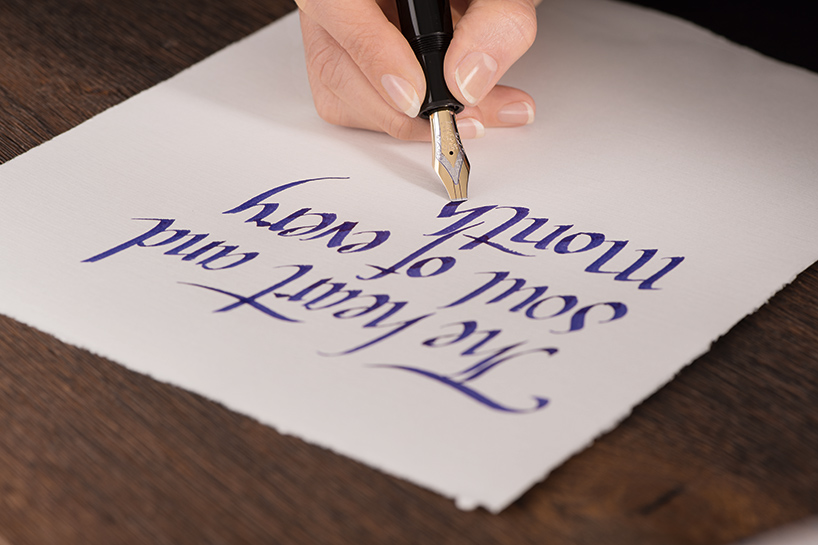 The heart and
soul of every
Mont